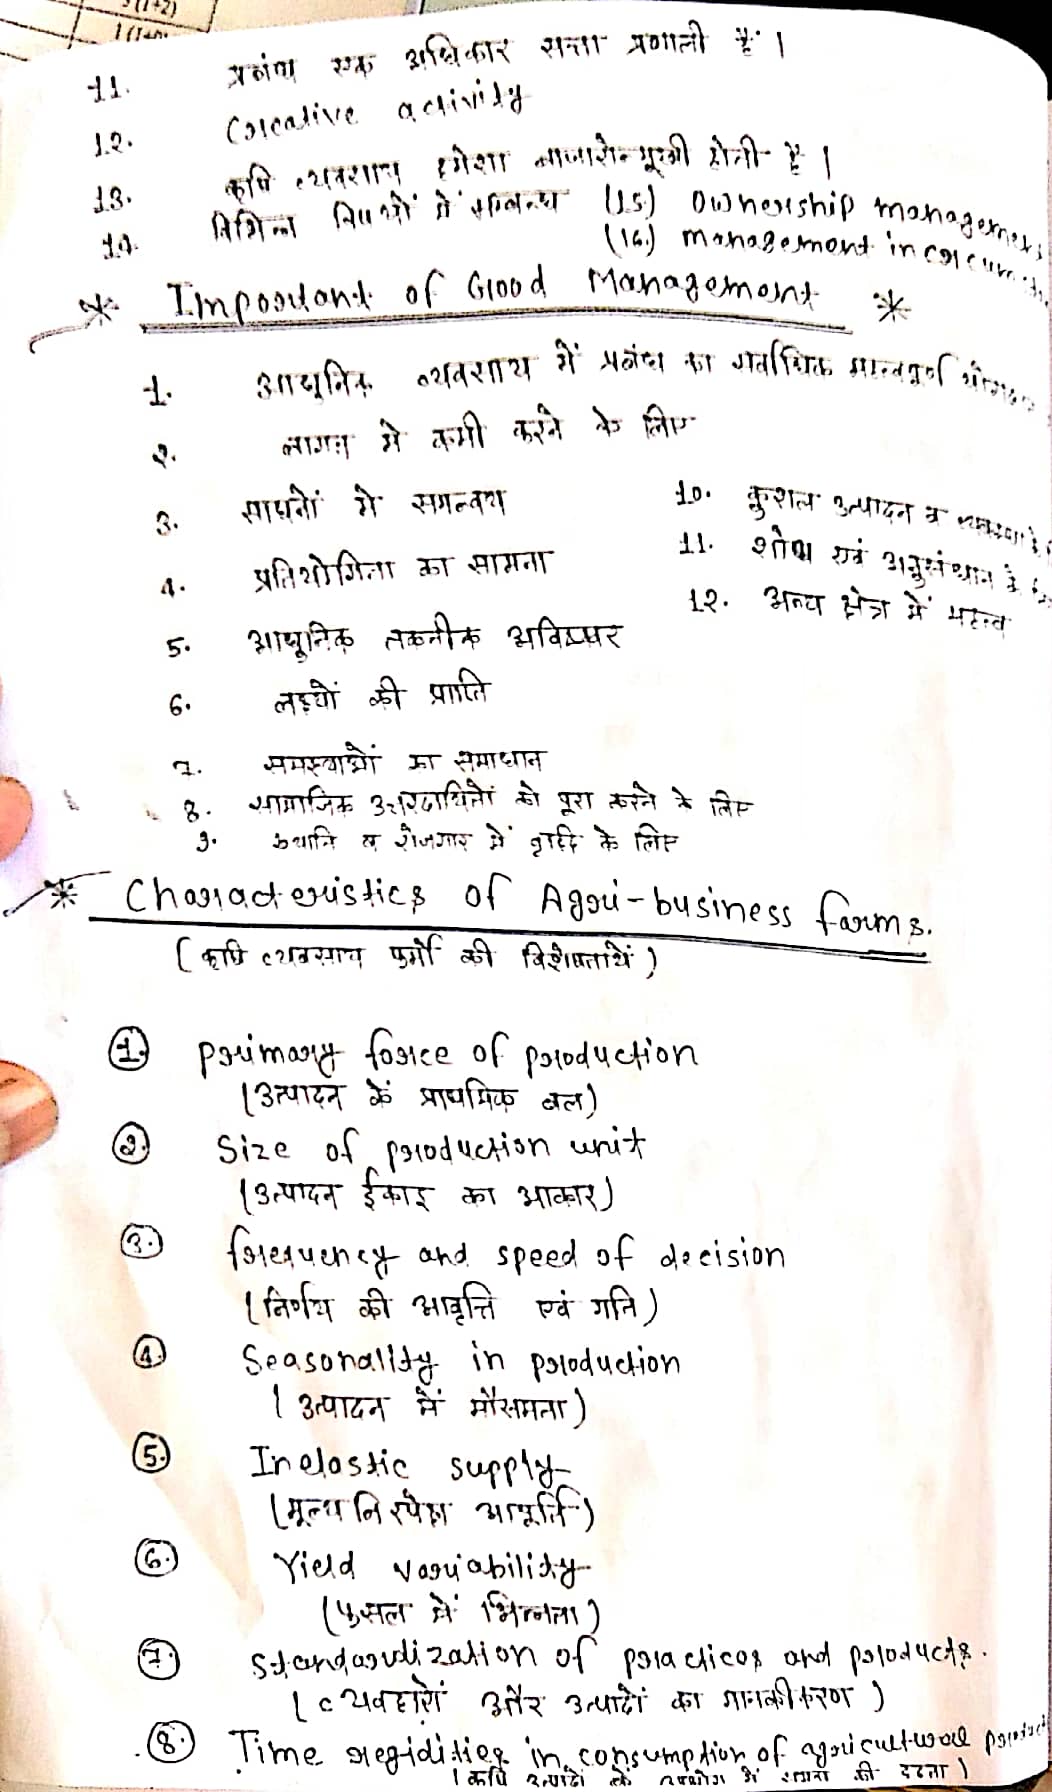 3(1+2)
11. प्रबंध एक अधिकार सत्ता प्रणाली है।
12. Creative activity
13. कृषि व्यवसाय हमेशा बाजारोन्मूखी होती है।
14. विभिन्न विषयों में सम्बन्ध (15.) Ownership management
(16.) management in
* Important of Good Management *
1. आधुनिक व्यवसाय में प्रबंध का सर्वाधिक महत्वपूर्ण
2. लागत मे कमी करने के लिए
3. साधनों मे समन्वय 10. कुशल उत्पादन व
4. प्रतियोगिता का सामना 11. शोध एवं अनुसंधान के
5. आधुनिक तकनीक 12. अन्य क्षेत्र में महत्व
6. लक्ष्यों की प्राप्ति
7. समस्याओं का समाधान
8. सामाजिक उत्तरदायित्वों को पूरा करने के लिए
9. ख्याति व रोजगार में वृद्धि के लिए
* Characteristics of Agri-business farms.
(कृषि व्यवसाय फर्मों की विशेषतायें)
1. Primary force of production
(उत्पादन के प्राथमिक बल)
2. Size of production unit
(उत्पादन ईकाइ का आकार)
3. frequency and speed of decision
(निर्णय की आवृत्ति एवं गति)
4. Seasonality in production
(उत्पादन में मौसमता)
5. Inelastic supply
(मूल्य निरपेक्ष आपूर्ति)
6. Yield variability
(फसल में भिन्नता)
7. Standardization of practices and products.
(व्यवहारों और उत्पादों का मानकीकरण)
8. Time regidities in consumption of agricultural
(कृषि उत्पादों के उपभोग में समय की दृढता)